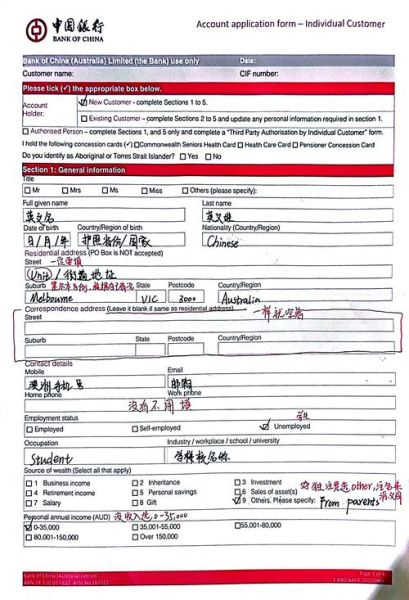 中国银行
BANK OF CHINA
Account application form – Individual Customer
Bank of China (Australia) Limited (the Bank) use only Date:
Customer name: CIF number:
Please tick (✓) the appropriate box below.
Account Holder:
☑ New Customer - complete Sections 1 to 5.
☐ Existing Customer - complete Sections 2 to 5 and update any personal information required in section 1.
☐ Authorised Person – complete Sections 1, 5 and only and complete a "Third Party Authorisation by Individual Customer" form.
I hold the following concession cards (✓) ☐ Commonwealth Seniors Health Card ☐ Health Care Card ☐ Pensioner Concession Card
Do you identify as Aboriginal or Torres Strait Islander? ☐ Yes ☐ No
Section 1: General information
Title
☐ Mr ☐ Mrs ☐ Ms ☐ Miss ☐ Others (please specify):
Full given name Last name
英文名 英文姓
Date of birth Country/Region of birth Nationality (Country/Region)
日/月/年 护照省份/国家 Chinese
Residential address (PO Box is NOT accepted)
Street 一定要填
(Unit) / 街道地址
Suburb State Postcode Country/Region
Melbourne VIC 3000 Australia
Correspondence address (Leave it blank if same as residential address) 一样就空着
Street
Suburb State Postcode Country/Region
Contact details
Mobile Email
澳洲手机号 邮箱
Home phone Work phone
没有不用填
Employment status
☐ Employed ☐ Self-employed ☑ Unemployed
Occupation Industry / workplace / school / university
Student
Source of wealth (Select all that apply)
☐ 1 Business income ☐ 2 Inheritance ☐ 3 Investment
☐ 4 Retirement income ☐ 5 Personal savings ☐ 6 Sales of asset(s)
☐ 7 Salary ☐ 8 Gift ☑ 9 Others. Please specify: From parents
Personal annual income (AUD) 没收入选, 0-35,000
☑ 0-35,000 ☐ 35,001-55,000 ☐ 55,001-80,000
☐ 80,001-150,000 ☐ Over 150,000
Bank of China (Australia) Limited